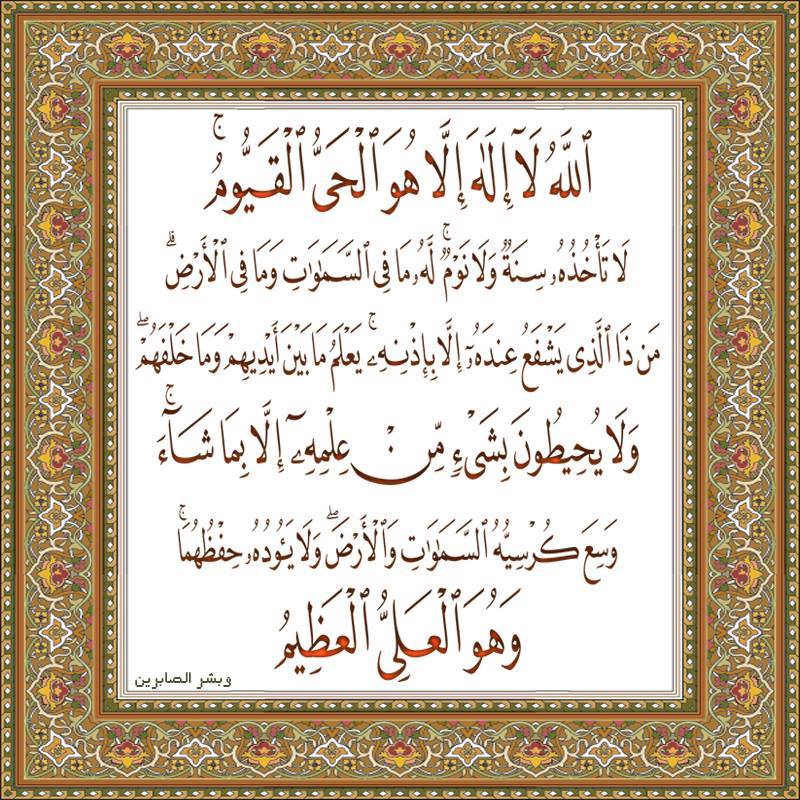 ٱللَّهُ لَآ إِلَٰهَ إِلَّا هُوَ ٱلْحَىُّ ٱلْقَيُّومُ ۚ
لَا تَأْخُذُهُۥ سِنَةٌ وَلَا نَوْمٌ ۚ لَّهُۥ مَا فِى ٱلسَّمَٰوَٰتِ وَمَا فِى ٱلْأَرْضِ ۗ
مَن ذَا ٱلَّذِى يَشْفَعُ عِندَهُۥٓ إِلَّا بِإِذْنِهِۦ ۚ يَعْلَمُ مَا بَيْنَ أَيْدِيهِمْ وَمَا خَلْفَهُمْ ۖ
وَلَا يُحِيطُونَ بِشَىْءٍ مِّنْ عِلْمِهِۦٓ إِلَّا بِمَا شَآءَ ۚ
وَسِعَ كُرْسِيُّهُ ٱلسَّمَٰوَٰتِ وَٱلْأَرْضَ ۖ وَلَا يَـُٔودُهُۥ حِفْظُهُمَا ۚ
وَهُوَ ٱلْعَلِىُّ ٱلْعَظِيمُ
وبشر الصابرين